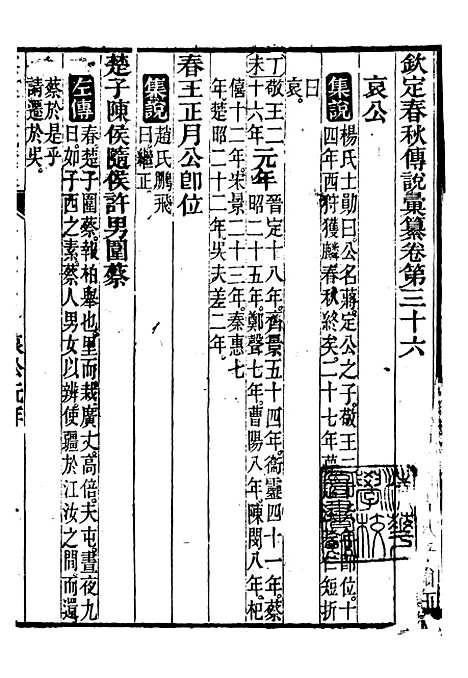 欽定春秋傳說彙纂卷第三十六
哀公
集說
楊氏士勛曰公名蔣定公之子敬王二
四年西狩獲麟春秋終矣二十七年薨
位十
仁短折
曰
哀
丁敬王二
未十六年
元年
晉定十八年齊景五十四年衛靈四十一年蔡
昭二十五年鄭聲七年曹陽八年陳閔八年杞
僖十二年宋景二十三年秦惠七
年楚昭二十二年吳夫差二年
春王正月公卽位
集說
趙氏鵬飛
曰繼正
楚子陳侯隨侯許男圍蔡
左傳
春楚子圍蔡報柏舉也里而栽廣丈高倍夫屯晝夜九
日如子西之素蔡人男女以辨使疆於江汝之間而還
蔡於是乎
請遷於吳
哀公元年